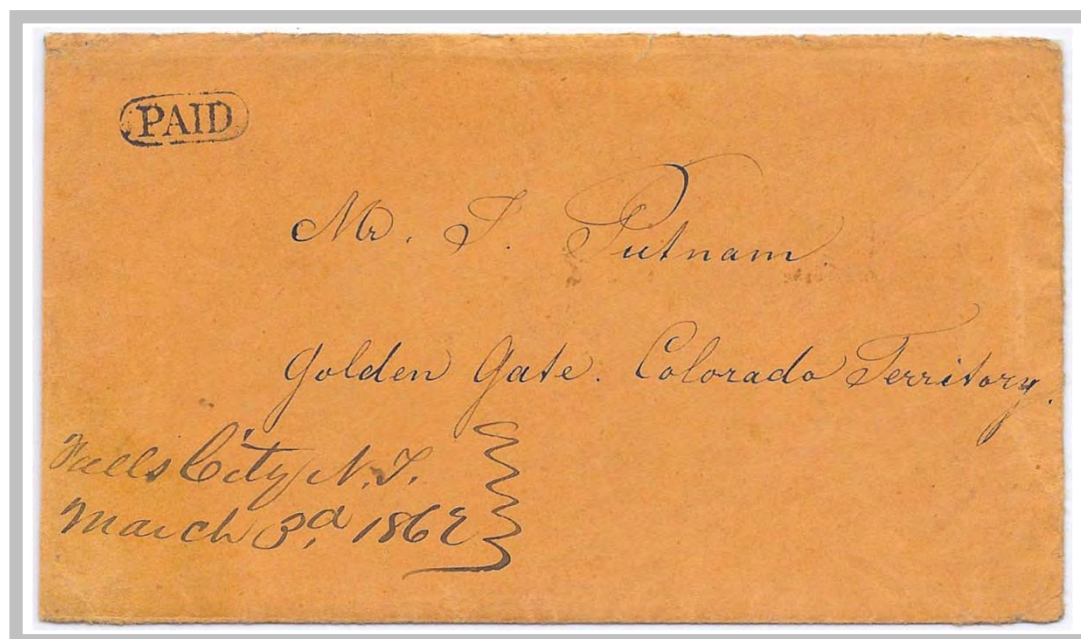 PAID
Mr. J. Putnam.
Golden Gate. Colorado Territory.
Falls City N.T.
March 3d, 1862